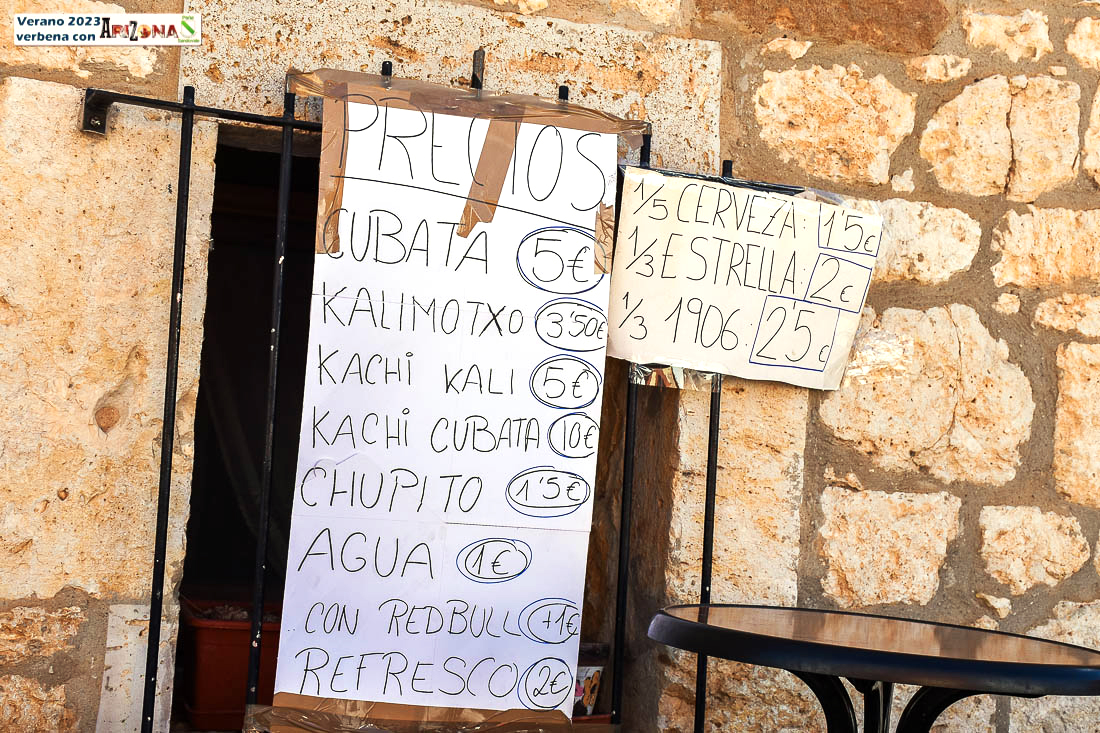 Verano 2023
verbena con ARIZONA
PRECIOS
CUBATA 5€
KALIMOTXO 3'50€
KACHI KALI 5€
KACHI CUBATA 10€
CHUPITO 1'5€
AGUA 1€
CON REDBULL +1€
REFRESCO 2€
1/5 CERVEZA: 1'5€
1/3 ESTRELLA: 2€
1/3 1906: 25€